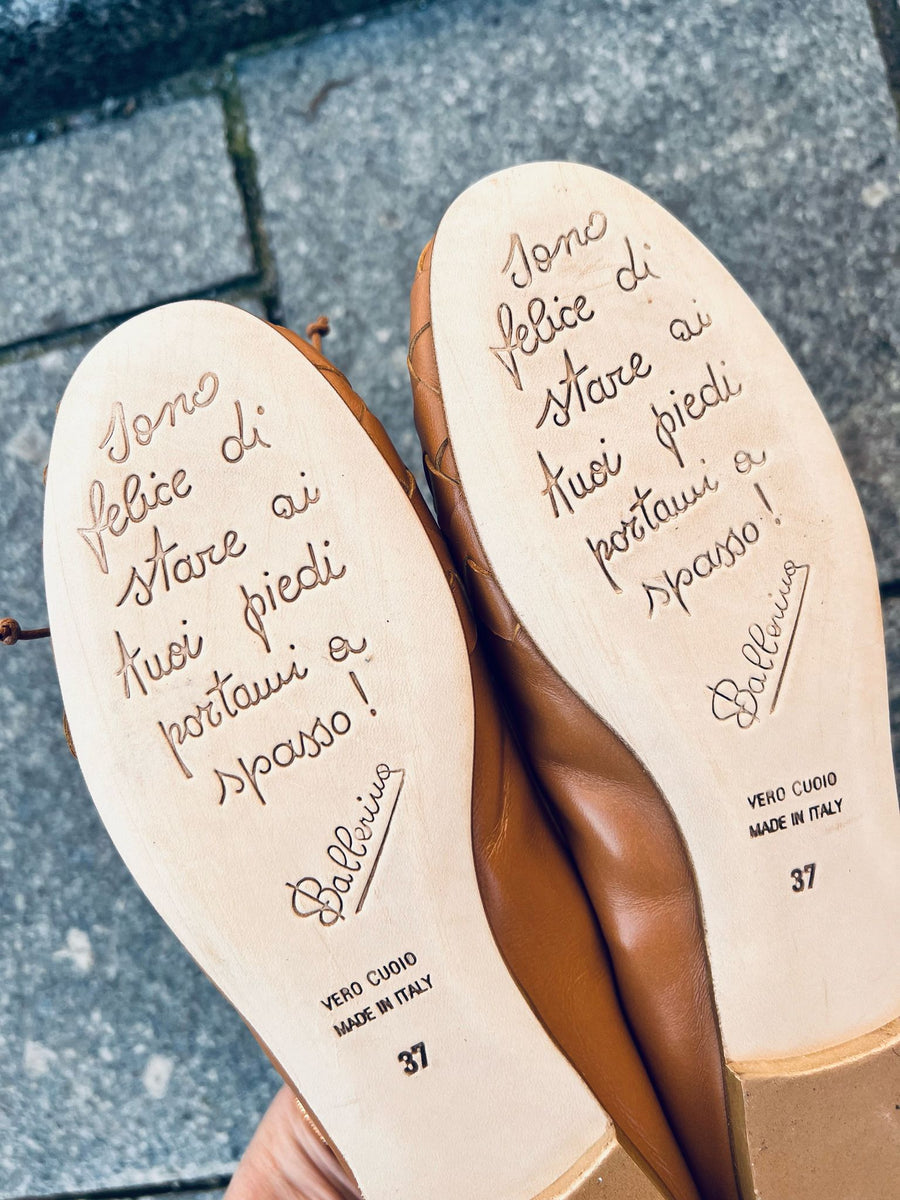 Sono
felice di
stare ai
tuoi piedi
portami a
spasso!
Ballerina
VERO CUOIO
MADE IN ITALY
37
Sono
felice di
stare ai
tuoi piedi
portami a
spasso!
Ballerina
VERO CUOIO
MADE IN ITALY
37